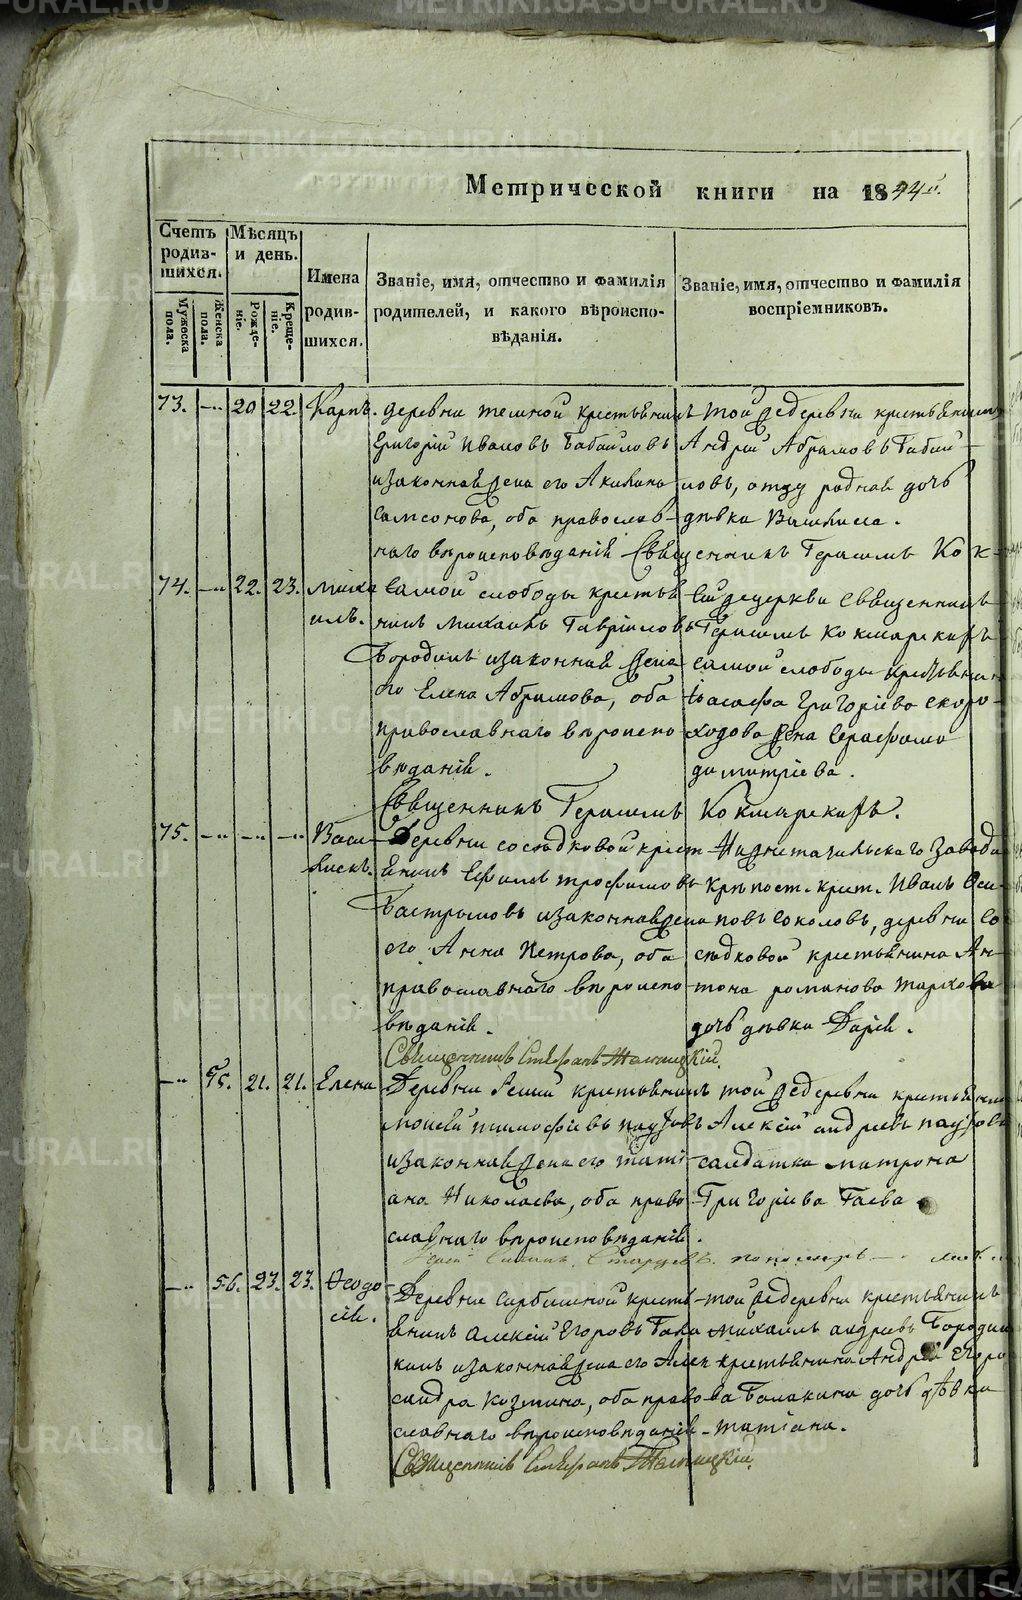 METRIKI.GASO-URAL.RU
Метрической книги на 1844й.
Счетъ родив-шихся.
Мужеска пола.
Женска пола.
Мѣсяцъ и день.
Рожде-ніе.
Креще-ніе.
Имена родив-шихся.
Званіе, имя, отчество и фамилія родителей, и какого вѣроиспо-вѣданія.
Званіе, имя, отчество и фамилія воспріемниковъ.
73. 20 22. Карпъ.
деревни крестьянинъ
Григорій Ивановъ Бабайловъ
и законная жена его Акилина
Самсонова, оба православ-
наго вѣроисповѣданія
той же деревни крестьянинъ
Андрей Абрамовъ Бабай-
ловъ, отцу родная дочь
дѣвка Василиса.
Священникъ Герасимъ Кок-
74. 22. 23. Миха
илъ.
Самой слободы крестья
нинъ Михаилъ Гавриловъ
Бородинъ и законная жена
его Елена Абрамова, оба
православнаго вѣроиспо
вѣданія.
Сей же церкви священникъ
Герасимъ Кокшарскихъ
самой слободы крестьянина
Іасафа Григоріева Скоро-
ходова жена Серафима
Димитріева.
Священникъ Герасимъ Кокшарскихъ.
75. Васи
лискъ.
Деревни сосѣдковой крест
янинъ Ефимъ Трофимовъ
и законная жена
его Анна Петрова, оба
православнаго вѣроиспо
вѣданія.
Нижнетагильскаго завода
крѣпост. крест. Иванъ Оси-
повъ Соколовъ, деревни Со
сѣдковой крестьянина Ан-
тона Романова
дочь дѣвка Дарія.
Священникъ Стефанъ
55. 21. 21. Елена
Деревни крестьянинъ
Моисей Тимофѣевъ
и законная жена его Тати-
ана Николаева, оба право
славнаго вѣроисповѣданія.
той же деревни крестьянинъ
Алексій Андреевъ
солдатка Матрона
Григоріева Гаева
56. 23. 23. Ѳеодо
сія.
Деревни крестья
янинъ Алексій Егоровъ Бала
кинъ и законная жена его Алек
сандра Козмина, оба право
славнаго вѣроисповѣданія
той же деревни крестьянинъ
Михаилъ Андреевъ Бородин
крестьянина Андрея Егоро
ва Балакина дочь дѣвка
Татіана.
Священникъ Стефанъ